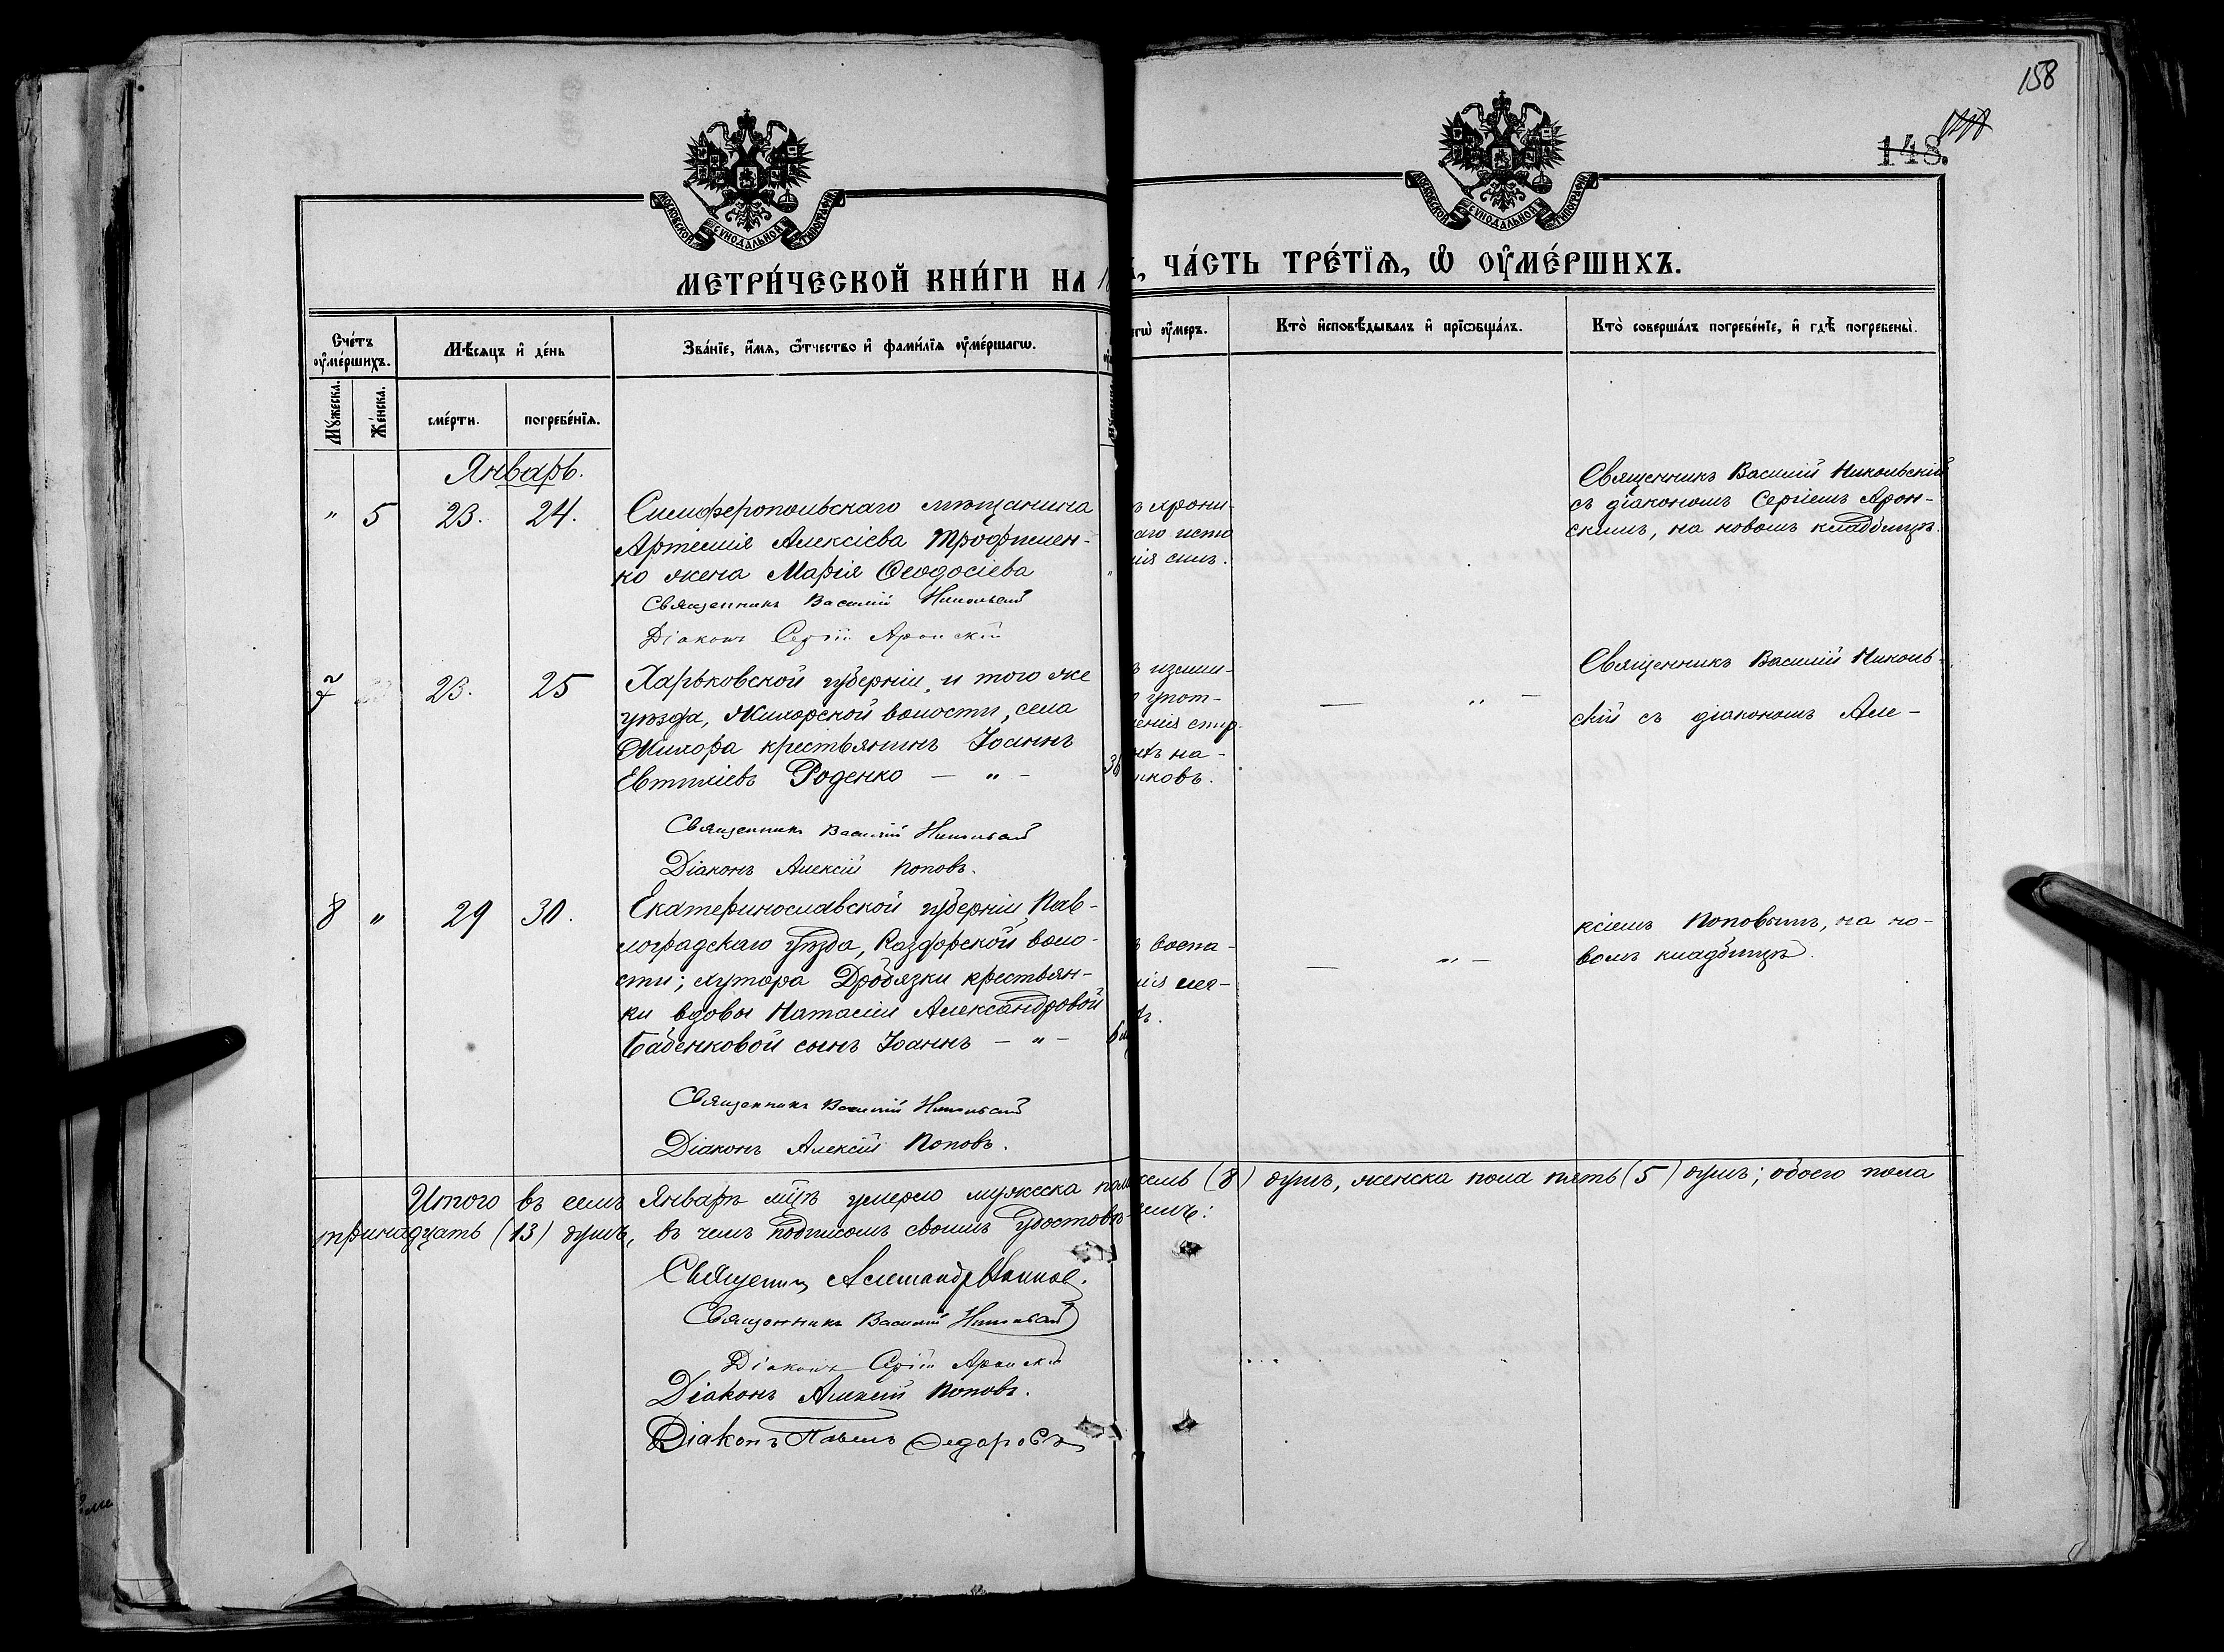 158
148.
МОСКОВСКОЙ СѴНОДАЛЬНОЙ ТИПОГРАФІИ
МОСКОВСКОЙ СѴНОДАЛЬНОЙ ТИПОГРАФІИ
МЕТРИ́ЧЕСКОЙ КНИ́ГИ НА 1
, ЧА́СТЬ ТРЕ́ТЇѦ, Ѡ҆ ОУ҆МЕ́РШИХЪ.
Сче́тъ оу҆ме́ршихъ.
Мѣ́сѧцъ и҆ де́нь
Зва́нїе, и҆́мѧ, ѻ҆́тчество и҆ фами́лїѧ оу҆ме́ршагѡ.
егѡ̀ оу҆́меръ.
Кто̀ и҆сповѣ́дывалъ и҆ прїѡбща́лъ.
Кто̀ соверша́лъ погребе́нїе, и҆ гдѣ̀ погребены̀.
Мꙋ́жеска.
Же́нска.
сме́рти.
погребе́нїѧ.
Январь.
" 5 23. 24.
Симферопольскаго мѣщанина
Артемія Алексіева Трофимен-
ко жена Марія Ѳеодосіева
Священникъ Василій Никольскій
Діаконъ Сергій Аронскій
ъ хрони-
аго исто
нія силъ.
Священникъ Василій Никольскій
съ діакономъ Сергіемъ Арон-
скимъ, на новомъ кладбищѣ.
7 23. 25
Харьковской губерніи, и того же
уѣзда, Жихорской волости, села
Жихора крестьянинъ Іоаннъ
Евтихіевъ Роденко — " —
38
Священникъ Василій Никольскій
Діаконъ Алексій Поповъ.
ъ излиш-
упот-
ленія спир-
ыхъ на-
итковъ.
— " —
Священникъ Василій Николь-
скій съ діакономъ Але-
8 " 29 30.
Екатеринославской губерніи, Пав-
лоградскаго уѣзда, Раздорской воло-
сти; хутора Дробязки крестьян-
ки вдовы Наталіи Александровой
Бабенковой сынъ Іоаннъ — " —
Священникъ Василій Никольскій
Діаконъ Алексій Поповъ.
ъ воспа-
нія лег-
— " —
ксіемъ Поповымъ, на но-
вомъ кладбищѣ.
Итого въ семъ Январѣ мцѣ умерло мужеска пол семь (8) душъ, женска пола пять (5) душъ; обоего пола
тринадцать (13) душъ, въ чемъ подписомъ своимъ удостовѣ емъ:
Священникъ Александръ
Священникъ Василій Никольскій
Діаконъ Сергій Аронскій
Діаконъ Алексій Поповъ.
Діаконъ Павелъ Федоровъ